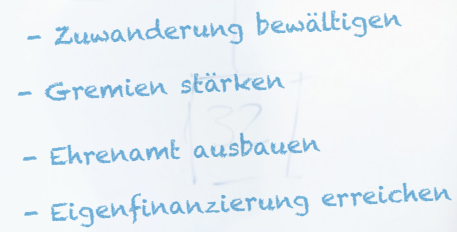 - Zuwanderung bewältigen
- Gremien stärken
32
- Ehrenamt ausbauen
- Eigenfinanzierung erreichen